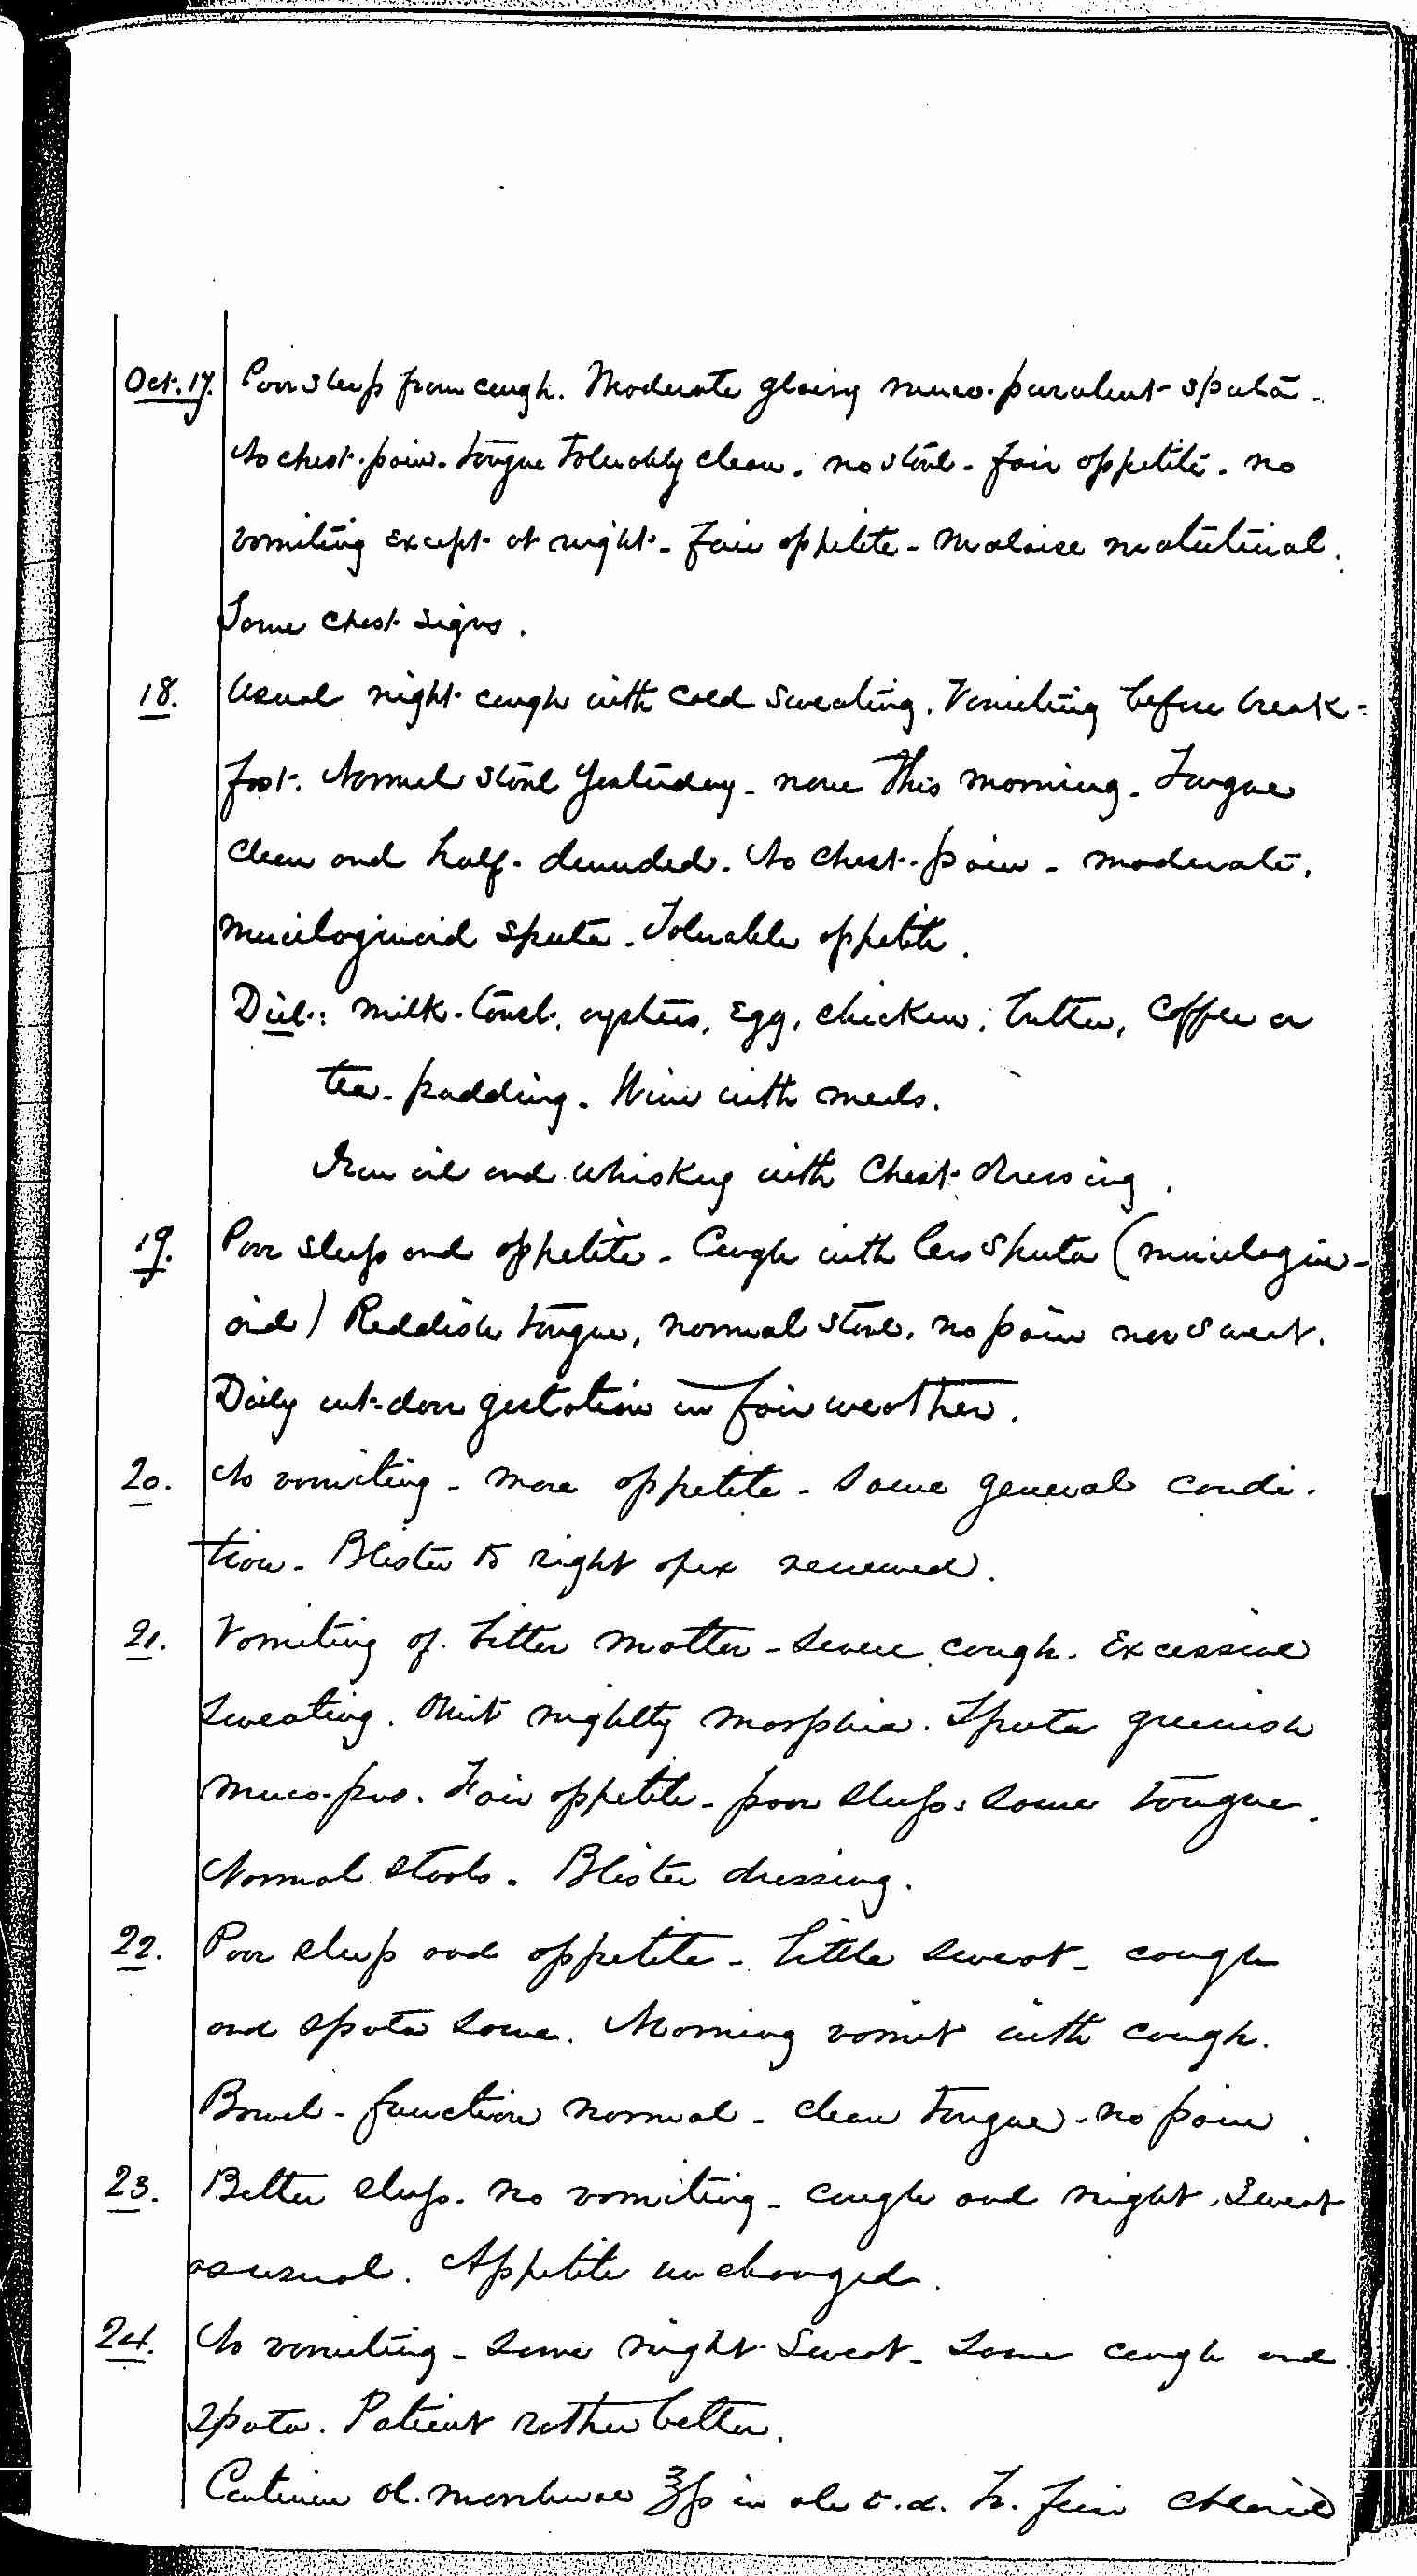 Oct. 17. Poor sleep from cough. Moderate glairy muco-purulent sputa.
No chest-pain. Tongue tolerably clean. no stool. fair appetite. no
vomiting except at night. Fair appetite. Malaise matutinal.
Some chest signs.
18. Usual night cough with cold sweating. Vomiting before break-
fast. Normal stool yesterday. none this morning. Tongue
clean and half-denuded. No chest-pain. moderate,
mucilaginoid sputa. Tolerable appetite.
Diet: milk-toast, oysters, egg, chicken, butter, coffee or
tea. pudding. Wine with meals.
Iron oil and whiskey with chest-dressing.
19. Poor sleep and appetite. Cough with less sputa (mucilagin-
oid) Reddish tongue, normal stool, no pain nor sweat.
Daily out-door gestation in fair weather.
20. No vomiting. more appetite. Same general condi-
tion. Blister to right apex renewed.
21. Vomiting of bitter matter. Severe cough. Excessive
sweating. Omit nightly morphia. Sputa greenish
muco-pus. Fair appetite. poor sleep. same tongue.
Normal stools. Blister dressing.
22. Poor sleep and appetite. Little sweat. cough
and sputa same. Morning vomit with cough.
Bowel-function normal. clean tongue. no pain.
23. Better sleep. No vomiting. cough and night-sweat
as usual. Appetite unchanged.
24. No vomiting. Some night-sweat. Same cough and
sputa. Patient rather better.
Continue ol. morrhuae ℥ss in ale t.d. Tr. ferri chlorid